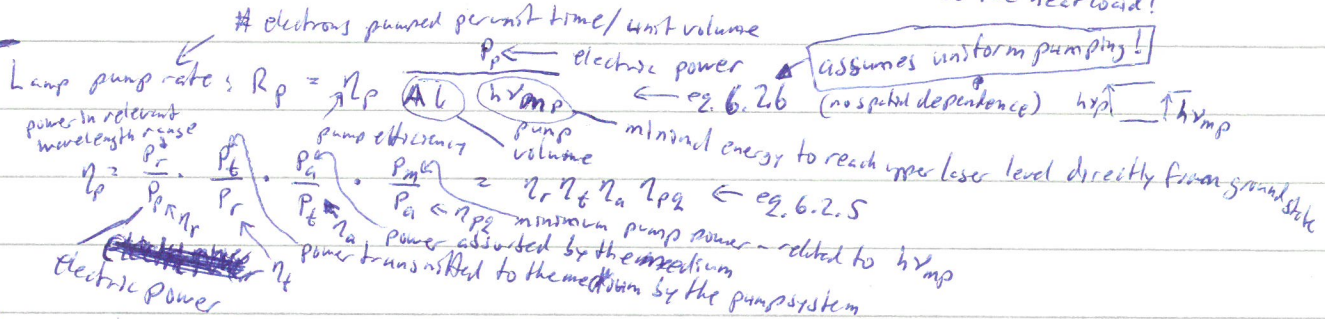 heat load!
# electrons pumped per unit time/unit volume
Lamp pump rate: R_p = η_p P_p / (Al hν_mp) ← electric power ← eq. 6.2.6 assumes uniform pumping! (no spatial dependence) hν_p ↑ ↑ hν_mp
power in relevant wavelength range
pump efficiency
pump volume
minimal energy to reach upper laser level directly from ground state
η_p = P_r/P_p · P_t/P_r · P_a/P_t · P_m/P_a = η_r η_t η_a η_pq ← eq. 6.2.5
← η_r η_t ← η_a ← η_pq
minimum pump power - related to hν_mp
power absorbed by the medium
power transmitted to the medium by the pump system
electric power